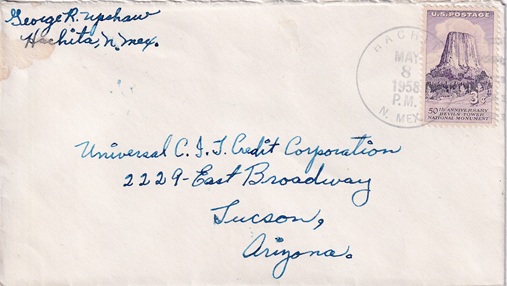 George R. Upshaw
Hachita, N. Mex.
HACHI
MAY
8
1958
P.M.
N. MEX.
U.S. POSTAGE
3¢
50TH ANNIVERSARY
DEVILS TOWER
NATIONAL MONUMENT
Universal C. I. T. Credit Corporation
2229-East Broadway
Tucson,
Arizona.